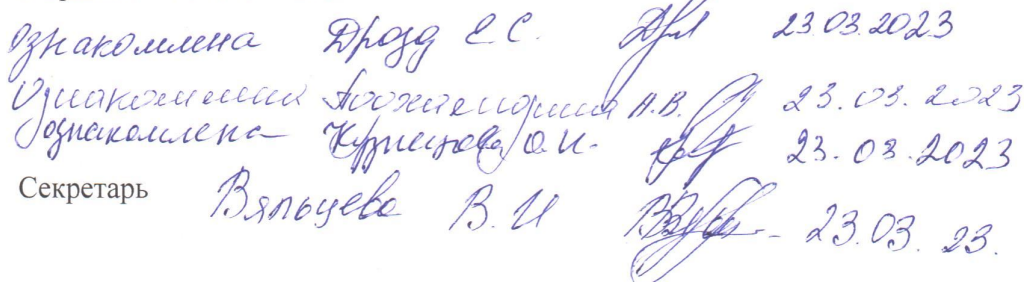 ознакомлена Дрозд Е.С. 23.03.2023
Ознакомлена А.В. 23.03.2023
ознакомлена Кузнецова О.И. 23.03.2023
Секретарь Вяльцева В.И 23.03.23.